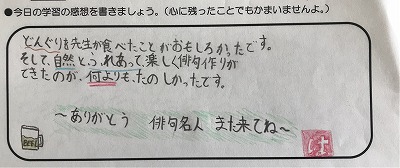 ●今日の学習の感想を書きましょう。(心に残ったことでもかまいませんよ。)
どんぐりを先生が食べたことがおもしろかったです。
そして、自然とふれあって、楽しく俳句作りが
できたのが、何よりも、たのしかったです。
～ありがとう 俳句名人 また来てね～